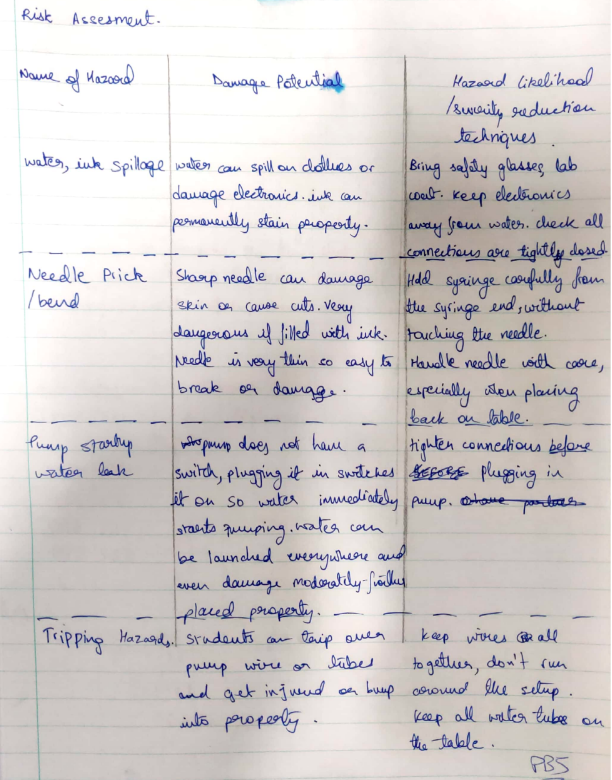 Risk Assesment.
Name of Hazard
Damage Potential
Hazard likelihood
/severity reduction
techniques.
water, ink spillage
water can spill on clothes or
damage electronics. ink can
permanently stain property.
Bring safety glasses, lab
coat. keep electronics
away from water. check all
connections are tightly closed
Needle Prick
/bend
Sharp needle can damage
skin or cause cuts. very
dangerous if filled with ink.
Needle is very thin so easy to
break or damage.
Hold syringe carefully from
the syringe end, without
touching the needle.
Handle needle with care,
especially when placing
back on table.
Pump startup
water leak
pump does not have a
switch, plugging it in switches
it on so water immediately
starts pumping. water can
be launched everywhere and
even damage moderately-further
placed property.
tighten connections before
BEFORE plugging in
pump.
Tripping Hazards.
Students can trip over
pump wire or tubes
and get injured or bump
into property.
keep wires all
together, don't run
around the setup.
keep all water tubes on
the table.
PB5